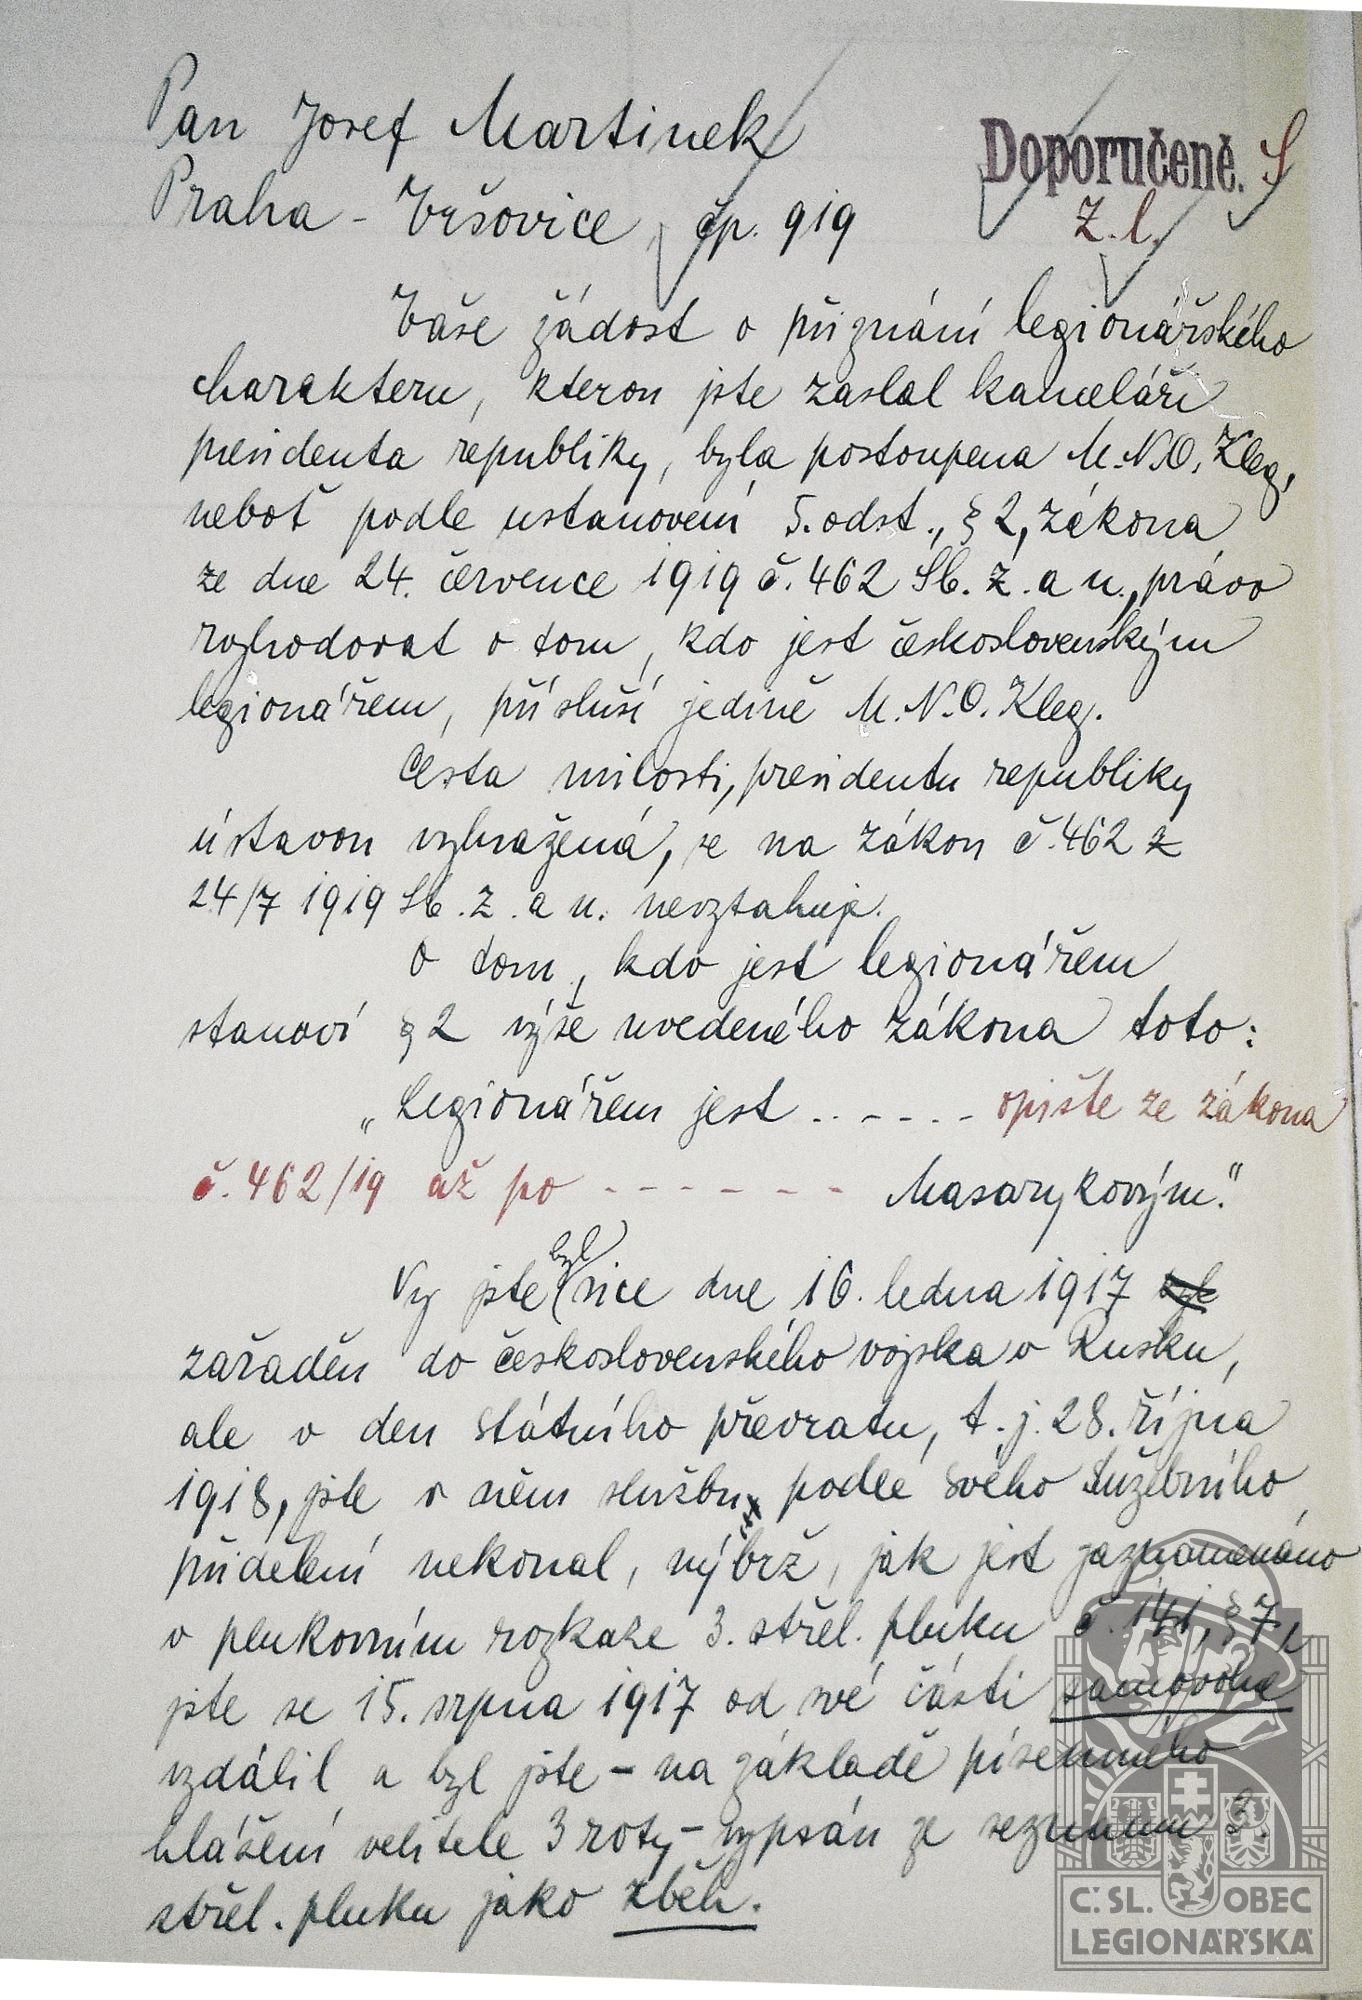 Pan Josef Martinek
Doporučeně. S
Praha - Vršovice, čp. 919
Z. l.
Vaše žádost o přiznání legionářského
charakteru, kterou jste zaslal kanceláři
presidenta republiky, byla postoupena M.N.O. Kleg,
neboť podle ustanovení 5. odst., § 2, zákona
ze dne 24. července 1919 č. 462 Sb. z. a n., právo
rozhodovat o tom, kdo jest československým
legionářem, přísluší jedině M.N.O. Kleg.
Cesta milosti, presidentu republiky
ústavou vyhražená, se na zákon č. 462 z
24/7 1919 Sb. z. a n. nevztahuje.
O tom, kdo jest legionářem
stanoví § 2 výše uvedeného zákona toto:
„Legionářem jest ...... opište ze zákona
č. 462/19 až po - - - - - - - Masarykovým."
Vy jste byl sice dne 16. ledna 1917 byl
zařaděn do československého vojska v Rusku,
ale v den státního převratu, t. j. 28. října
1918, jste v něm službu podle svého služebního
přidělení nekonal, nýbrž, jak jest zaznamenáno
v plukovním rozkaze 3. střel. pluku č. 141, § 7,
jste se 15. srpna 1917 od své části samovolně
vzdálil a byl jste - na základě písemného
hlášení velitele 3 roty - vypsán ze seznamu 3.
střel. pluku jako zběh.
Č.SL. OBEC
LEGIONÁŘSKÁ